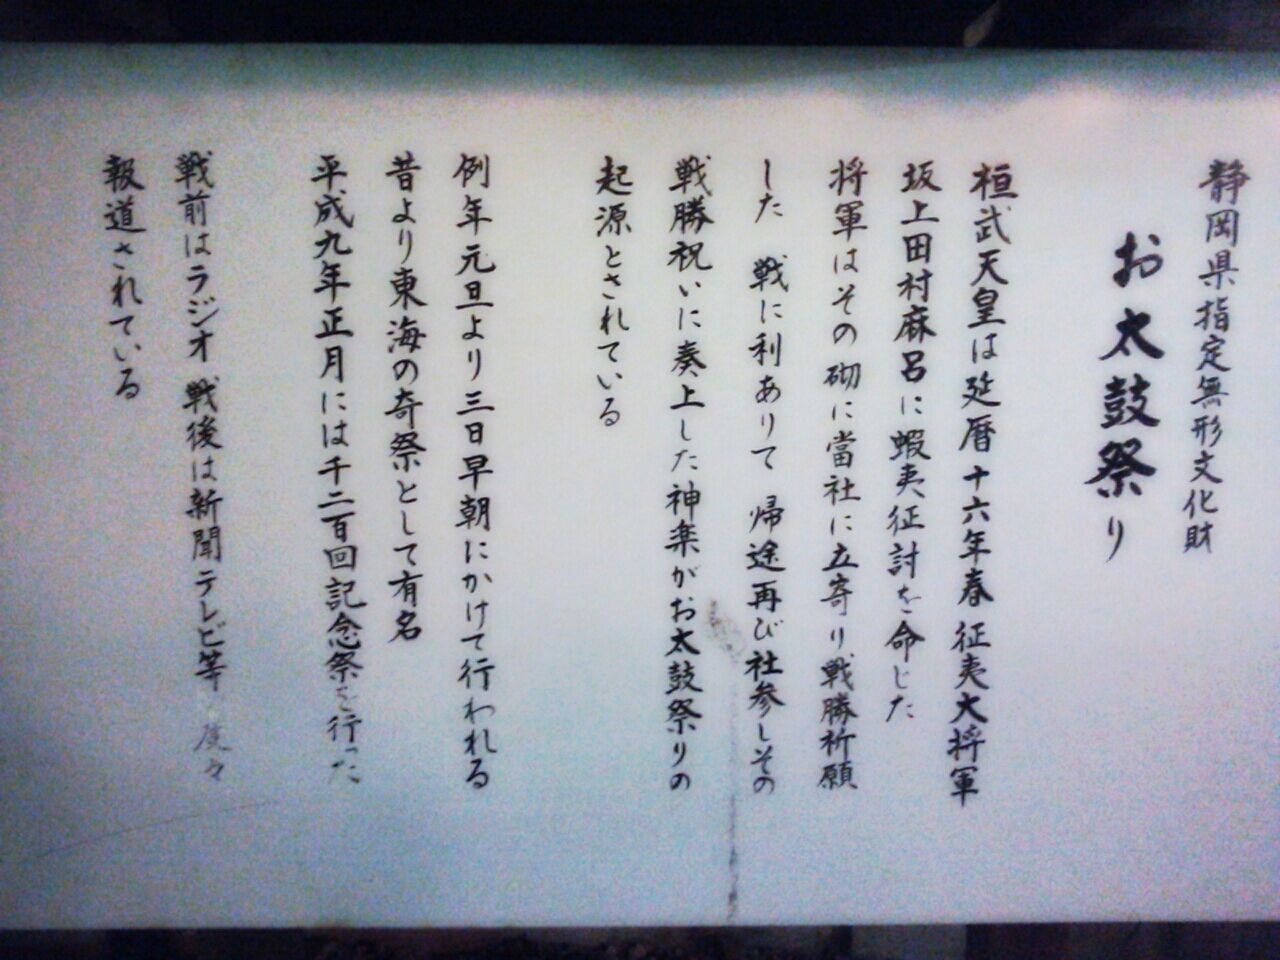 静岡県指定無形文化財
お太鼓祭り
桓武天皇は延暦十六年春 征夷大将軍
坂上田村麻呂に蝦夷征討を命じた
将軍はその砌に當社に立寄り戦勝祈願
した 戦に利ありて 帰途再び社参しその
戦勝祝いに奏上した神楽がお太鼓祭りの
起源とされている
例年元旦より三日早朝にかけて行われる
昔より東海の奇祭として有名
平成九年正月には千二百回記念祭を行った
戦前はラジオ 戦後は新聞テレビ等 度々
報道されている